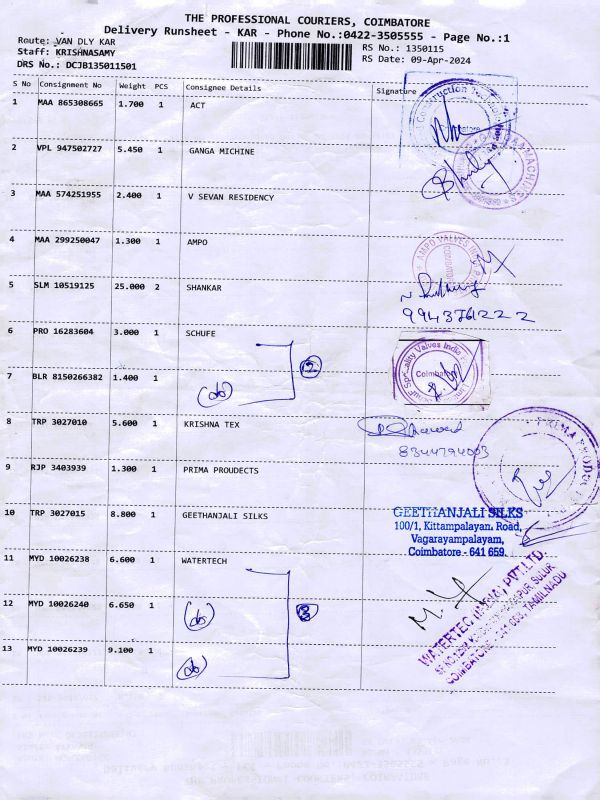 THE PROFESSIONAL COURIERS, COIMBATORE
Delivery Runsheet - KAR - Phone No.:0422-3505555 - Page No.:1
Route: VAN DLY KAR
Staff: KRISHNASAMY
DRS No.: DCJB135011501
RS No.: 1350115
RS Date: 09-Apr-2024
S No Consignment No Weight PCS Consignee Details Signature
1 MAA 865308665 1.700 1 ACT
Construction
2 VPL 947502727 5.450 1 GANGA MICHINE
3 MAA 574251955 2.400 1 V SEVAN RESIDENCY
4 MAA 299250047 1.300 1 AMPO
AMPO VALVES INDIA
5 SLM 10519125 25.000 2 SHANKAR
9943761222
6 PRO 16283604 3.000 1 SCHUFE
Valves India
Coimbatore
2
7 BLR 8150266382 1.400 1
(do)
8 TRP 3027010 5.600 1 KRISHNA TEX
8344794003
9 RJP 3403939 1.300 1 PRIMA PROUDECTS
PRIMA PRODUCTS
10 TRP 3027015 8.800 1 GEETHANJALI SILKS
GEETHANJALI SILKS
100/1, Kittampalayan. Road,
Vagarayampalayam,
Coimbatore - 641 659.
11 MYD 10026238 6.600 1 WATERTECH
WATERTEC (INDIA) PVT.LTD.
12 MYD 10026240 6.650 1
(do)
3
13 MYD 10026239 9.100 1
(do)